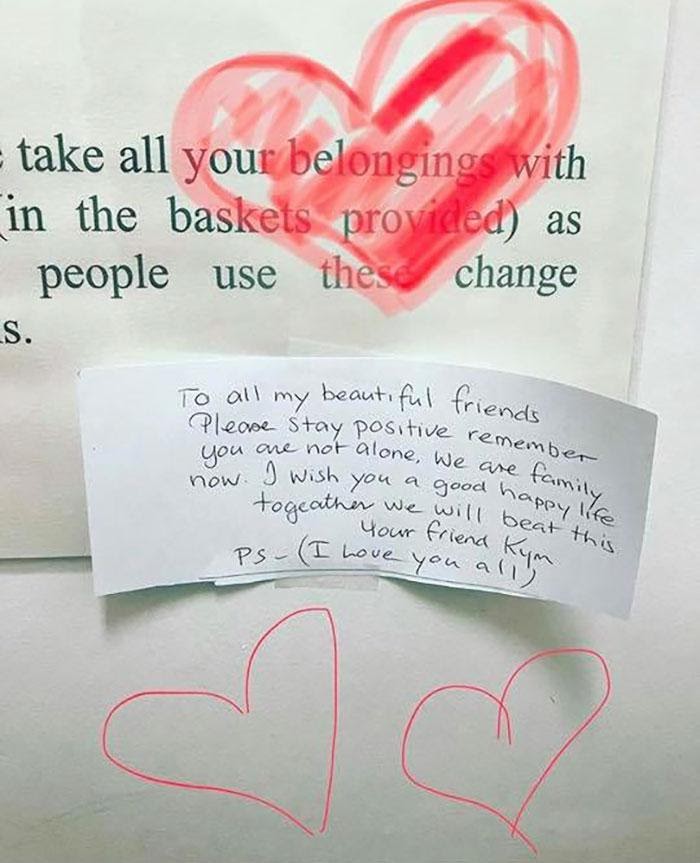 take all your belongings with
(in the baskets provided) as
people use these change
s.
To all my beautiful friends
Please stay positive remember
you are not alone, we are family
now. I wish you a good happy life
togeather we will beat this
Your friend Kym
PS - (I Love you all)